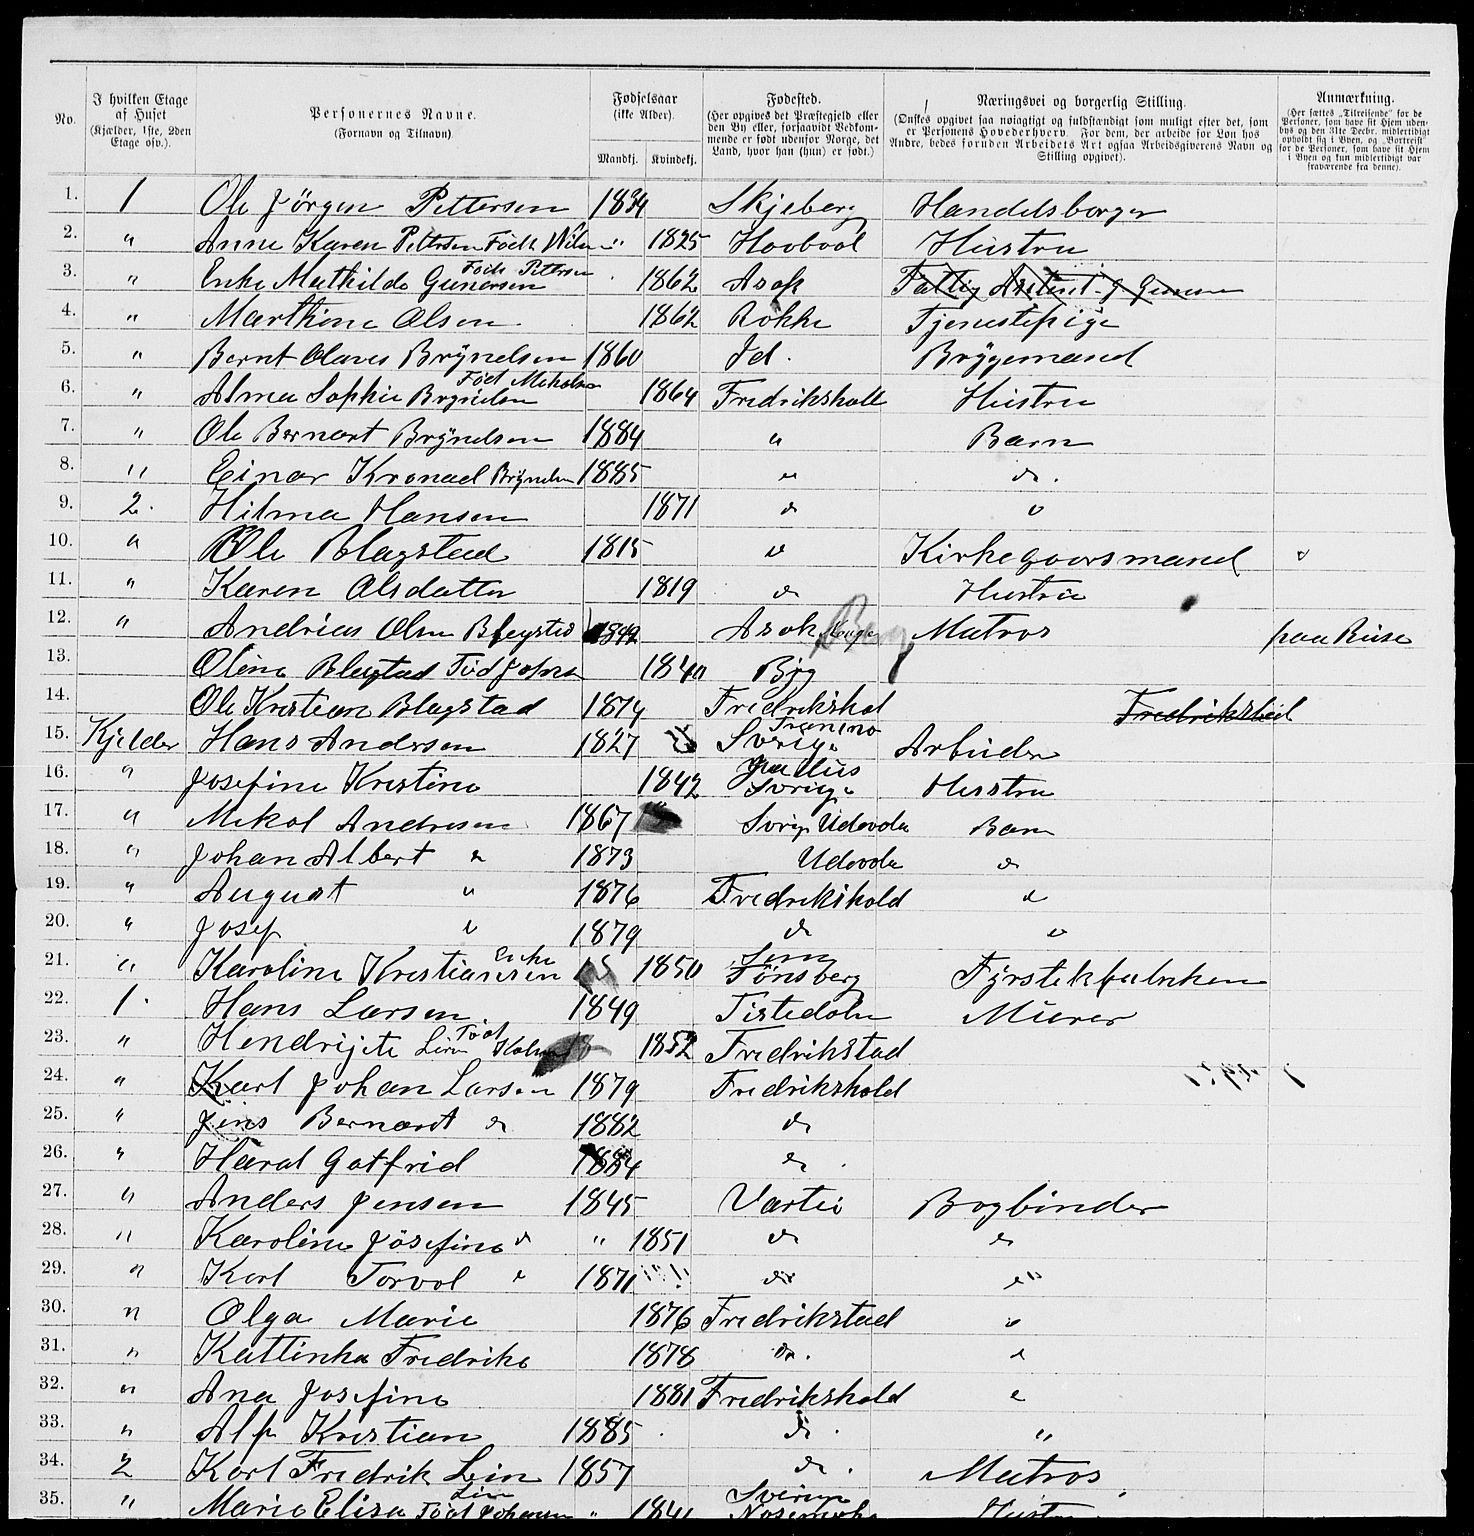 No. I hvilken Etage af Huset (Kjælder, 1ste, 2den Etage osv.). Personernes Navne. (Fornavn og Tilnavn) Fødselsaar (ikke Alder). Mandkj. Kvindekj. Fødested. (Her opgives det Præstegjeld eller den By eller, forsaavidt Vedkommende er født udenfor Norge, det Land, hvor han (hun) er født.) Næringsvei og borgerlig Stilling. (Ønskes opgivet saa nøiagtigt og fuldstændigt som muligt efter det, som er Personens Hovederhverv. For dem, der arbeide for Løn hos Andre, bedes foruden Arbeidets Art ogsaa Arbeidsgiverens Navn og Stilling opgivet). Anmærkning. (Her sættes „Tilreisende" for de Personer, som have sit Hjem udenbys og den 31te Decbr. midlertidigt opholdt sig i Byen, og „Bortreist" for de Personer, som have sit Hjem i Byen og kun midlertidigt var fraværende fra denne).
1. 1 Ole Jörgen Pettersen 1834 Skjeberg Handelsborger
2. " Anne Karen Pettersen Födt " 1825 Hovböl Hustru
3. " Enke Mathilde Gunersen Födt Pettersen 1862 Asak
4. " Marthine Olsen 1862 Rokke Tjenestepige
5. " Bernt Olaves Brÿnelsen 1860 Id. Brÿggemand
6. " Alma Sophie Brynilsen Föd 1864 Fredrikshall Hustru
7. " Ole Bernart Brÿnelsen 1884 " Barn
8. " Einar Brÿnelsen 1885 " do.
9. 2. Hilma Hansen 1871 do do
10. " Ole Blagstad 1815 do Kirkegaarsmand
11. " Karen Olsdatter 1819 do Hustru
12. " Andrias Olsen Blegsted 1842 Asak Berg Matros paa Reise
13. Oline Blagstad Föd Johns 1840 Bÿg
14. Ole Kristian Blagstad 1874 Fredrikshal Fredrikshal
15. Kjelder Hans Andersen 1827 Sverige Arbeider
16. " Josefine Kristine 1842 Sverige Hustru
17. " Mikal Andresen 1867 Sverig Udevda Barn
18. " Johan Albert do 1873 Udevda do
19. " August " 1876 Fredrikshald do
20. " Josef do 1879 do do
21. " Karoline Kristiansen Enke 1850 Tönsberg Fÿrstekfabriken
22. 1. Hans Larsen. 1849 Tistedalen Murer
23. " Hendrijete Föd 1852 Fredrikstad
24. " Karl Johan Larsen 1879 Fredrikshald
25. " Jens Bernardt do 1882 do
26. " Haral Gotfrid 1884 do.
27. " Anders Jensen 1845 Vartei Bogbinder
28. " Karoline Jösefine do " 1851 do do
29. " Karl Torvol do 1871 do do
30. " Olga Marie 1876 Fredrikstad do
31. " Kattinka Fredrike 1878 do. do
32. " Ana Josefine 1881 Fredrikshald do
33. " Alf Kristian 1885 do. "
34. 2 Karl Fredrik Lein 1857 do. Matros
35. " Marie Elisa Lein Föd Johansen " 1841 Sverige Hustru